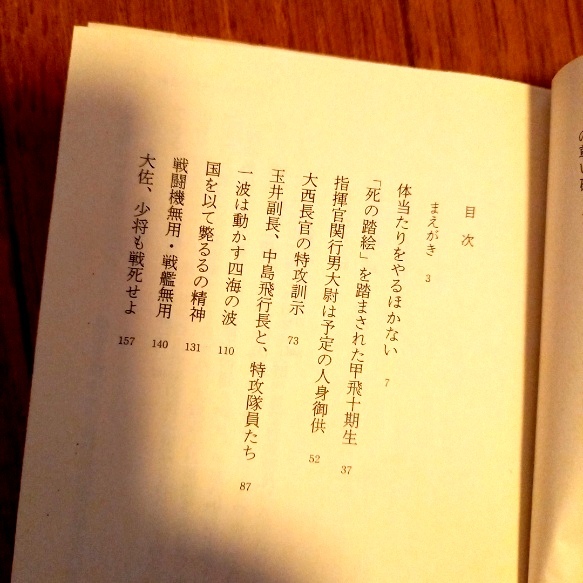 目次
まえがき 3
体当たりをやるほかない 7
「死の踏絵」を踏まされた甲飛十期生 37
指揮官関行男大尉は予定の人身御供 52
大西長官の特攻訓示 73
玉井副長、中島飛行長と、特攻隊員たち 87
一波は動かす四海の波 110
国を以て斃るるの精神 131
戦闘機無用・戦艦無用 140
大佐、少将も戦死せよ 157